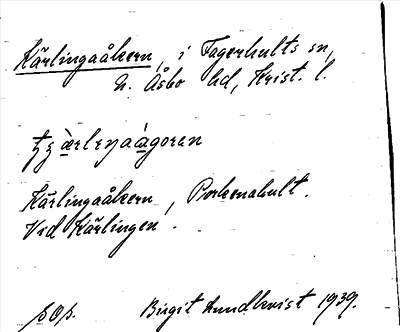 Kärlingaåkern, i Fagerhults sn,
N. Åsbo hd, Krist. l.
Kärlingaåkern, Porkenahult.
Vid Kärlingen.
Birgit Lundkvist 1939.